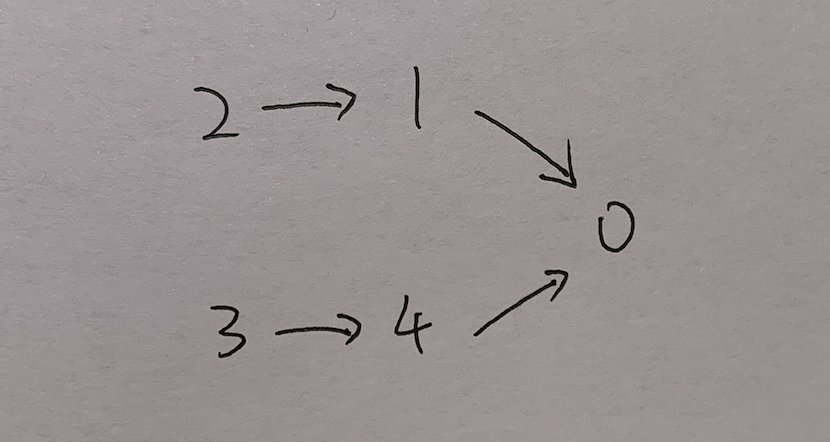 2 → 1
0
3 → 4